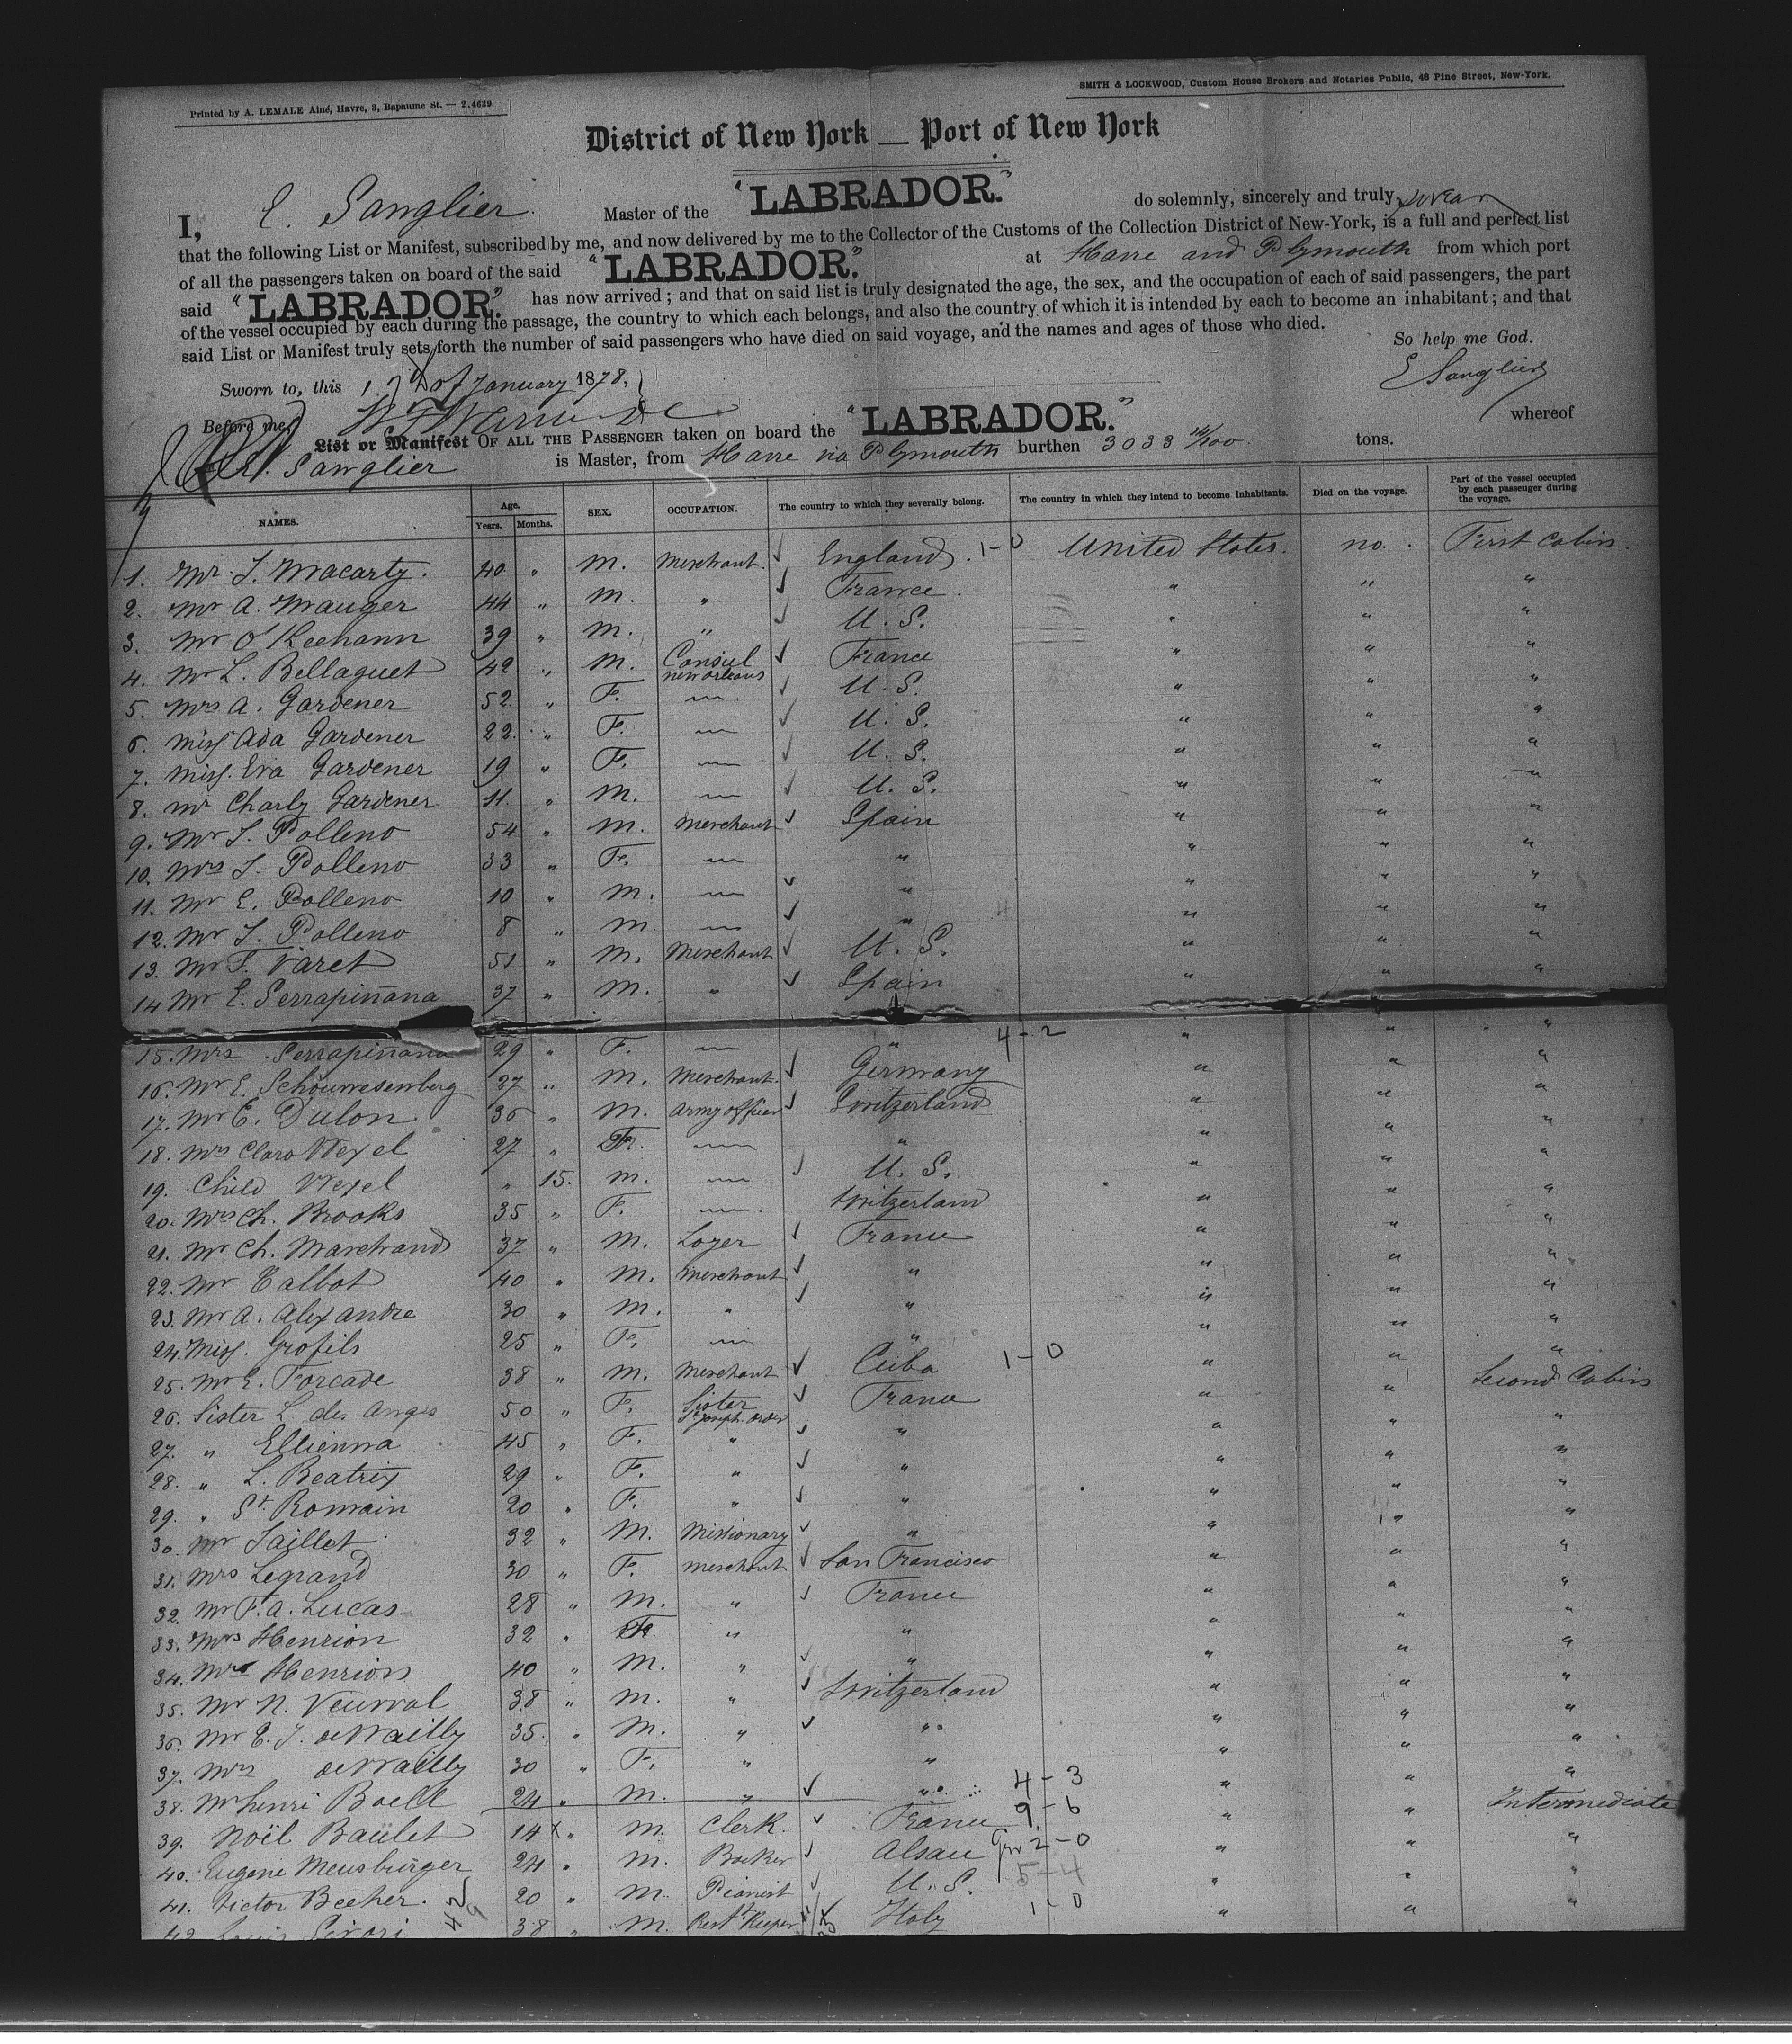 Printed by A. LEMALE Ainé, Havre, 3, Bapaume St. — 2.4629
SMITH & LOCKWOOD, Custom House Brokers and Notaries Public, 48 Pine Street, New-York.
District of New York — Port of New York
I, E. Sanglier. Master of the "LABRADOR." do solemnly, sincerely and truly swear
that the following List or Manifest, subscribed by me, and now delivered by me to the Collector of the Customs of the Collection District of New-York, is a full and perfect list
of all the passengers taken on board of the said "LABRADOR." at Havre and Plymouth from which port
said "LABRADOR." has now arrived; and that on said list is truly designated the age, the sex, and the occupation of each of said passengers, the part
of the vessel occupied by each during the passage, the country to which each belongs, and also the country of which it is intended by each to become an inhabitant; and that
said List or Manifest truly sets forth the number of said passengers who have died on said voyage, and the names and ages of those who died.
So help me God.
Sworn to, this of January 1878,
E Sanglier
Before me,
List or Manifest OF ALL THE PASSENGER taken on board the "LABRADOR." whereof
E. Sanglier is Master, from Havre via Plymouth burthen 3033 /100 tons.
NAMES. Age. Years. Months. SEX. OCCUPATION. The country to which they severally belong. The country in which they intend to become inhabitants. Died on the voyage. Part of the vessel occupied by each passenger during the voyage.
1. Mr. J. Macarty. 40 " M. Merchant. England. 1-0 United States. no. First Cabin.
2. Mr A. Mauger 44 " M. " France. " " "
3. Mr O'Keehann 39 " M. " U.S. " " "
4. Mr L. Bellaguet 42 " M. Consul New Orleans France " " "
5. Mrs A. Gardener 52. " F. — U.S. " " "
6. Miss Ada Gardener 22. " F. — U.S. " " "
7. Miss. Eva Gardener 19 " F. — U.S. " " "
8. Mr Charly Gardener 11. " M. — U.S. " " "
9. Mr J. Polleno 54 " M. Merchant Spain " " "
10. Mrs J. Polleno 33 " F. — " " " "
11. Mr E. Polleno 10 " M. — " " " "
12. Mr J. Polleno 8 " M. — " " " "
13. Mr F. Varet 51 " M. Merchant U.S. " " "
14 Mr E. Serrapiñana 37 " M. " Spain " " "
15. Mrs Serrapiñana 29 " F. — " 4-2 " " "
16. Mr E. Schouwesenberg 27 " M. Merchant. Germany " " "
17. Mr E. Dulon 36 " M. Army officer Switzerland " " "
18. Mrs Clara Wexel 27 " F. — " " " "
19. Child Wexel " 15. M. — U.S. " " "
20. Mrs Ch. Brooks 35 " F. — Switzerland " " "
21. Mr Ch. Marchand 37 " M. Loyer France " " "
22. Mr Talbot 40 " M. Merchant " " " "
23. Mr A. Alexandre 30 " M. " " " " "
24. Miss. Grofils 25 " F. — " " " "
25. Mr E. Forcade 38 " M. Merchant Cuba 1-0 " " "
26. Sister L. des Anges 50 " F. Sister St Joseph. order France " " Second Cabin
27. " Ellienna 45 " F. " " " " "
28. " L. Beatrix 29 " F. " " " " "
29. " St Romain 20 " F. " " " " "
30. Mr Saillet 32 " M. Missionary " " " "
31. Mrs Legrand 30 " F. Merchant San Francisco " " "
32. Mr F. A. Lucas. 28 " M. " France " " "
33. Mrs Henrion 32 " F. " " " " "
34. Mr Henrion 40 " M. " " " " "
35. Mr N. Veuvval 38 " M. " Switzerland " " "
36. Mr E. J. de Wailly 35. " M. " " " " "
37. Mrs de Wailly 30 " F. " " " " "
38. Mr Henri Boell 24 " M. " " 4-3 " " "
39. Noël Baület 14 X " M. Clerk. France 9-6 " " Intermediate
40. Eugene Meusburger 24 " M. Alsau Ger 2-0 " " "
41. Victor Becher. 20 " M. Pianist U.S. 5-4 " " "
42 Louis 38 " M. Rest. Keeper Italy 1-0 " " "